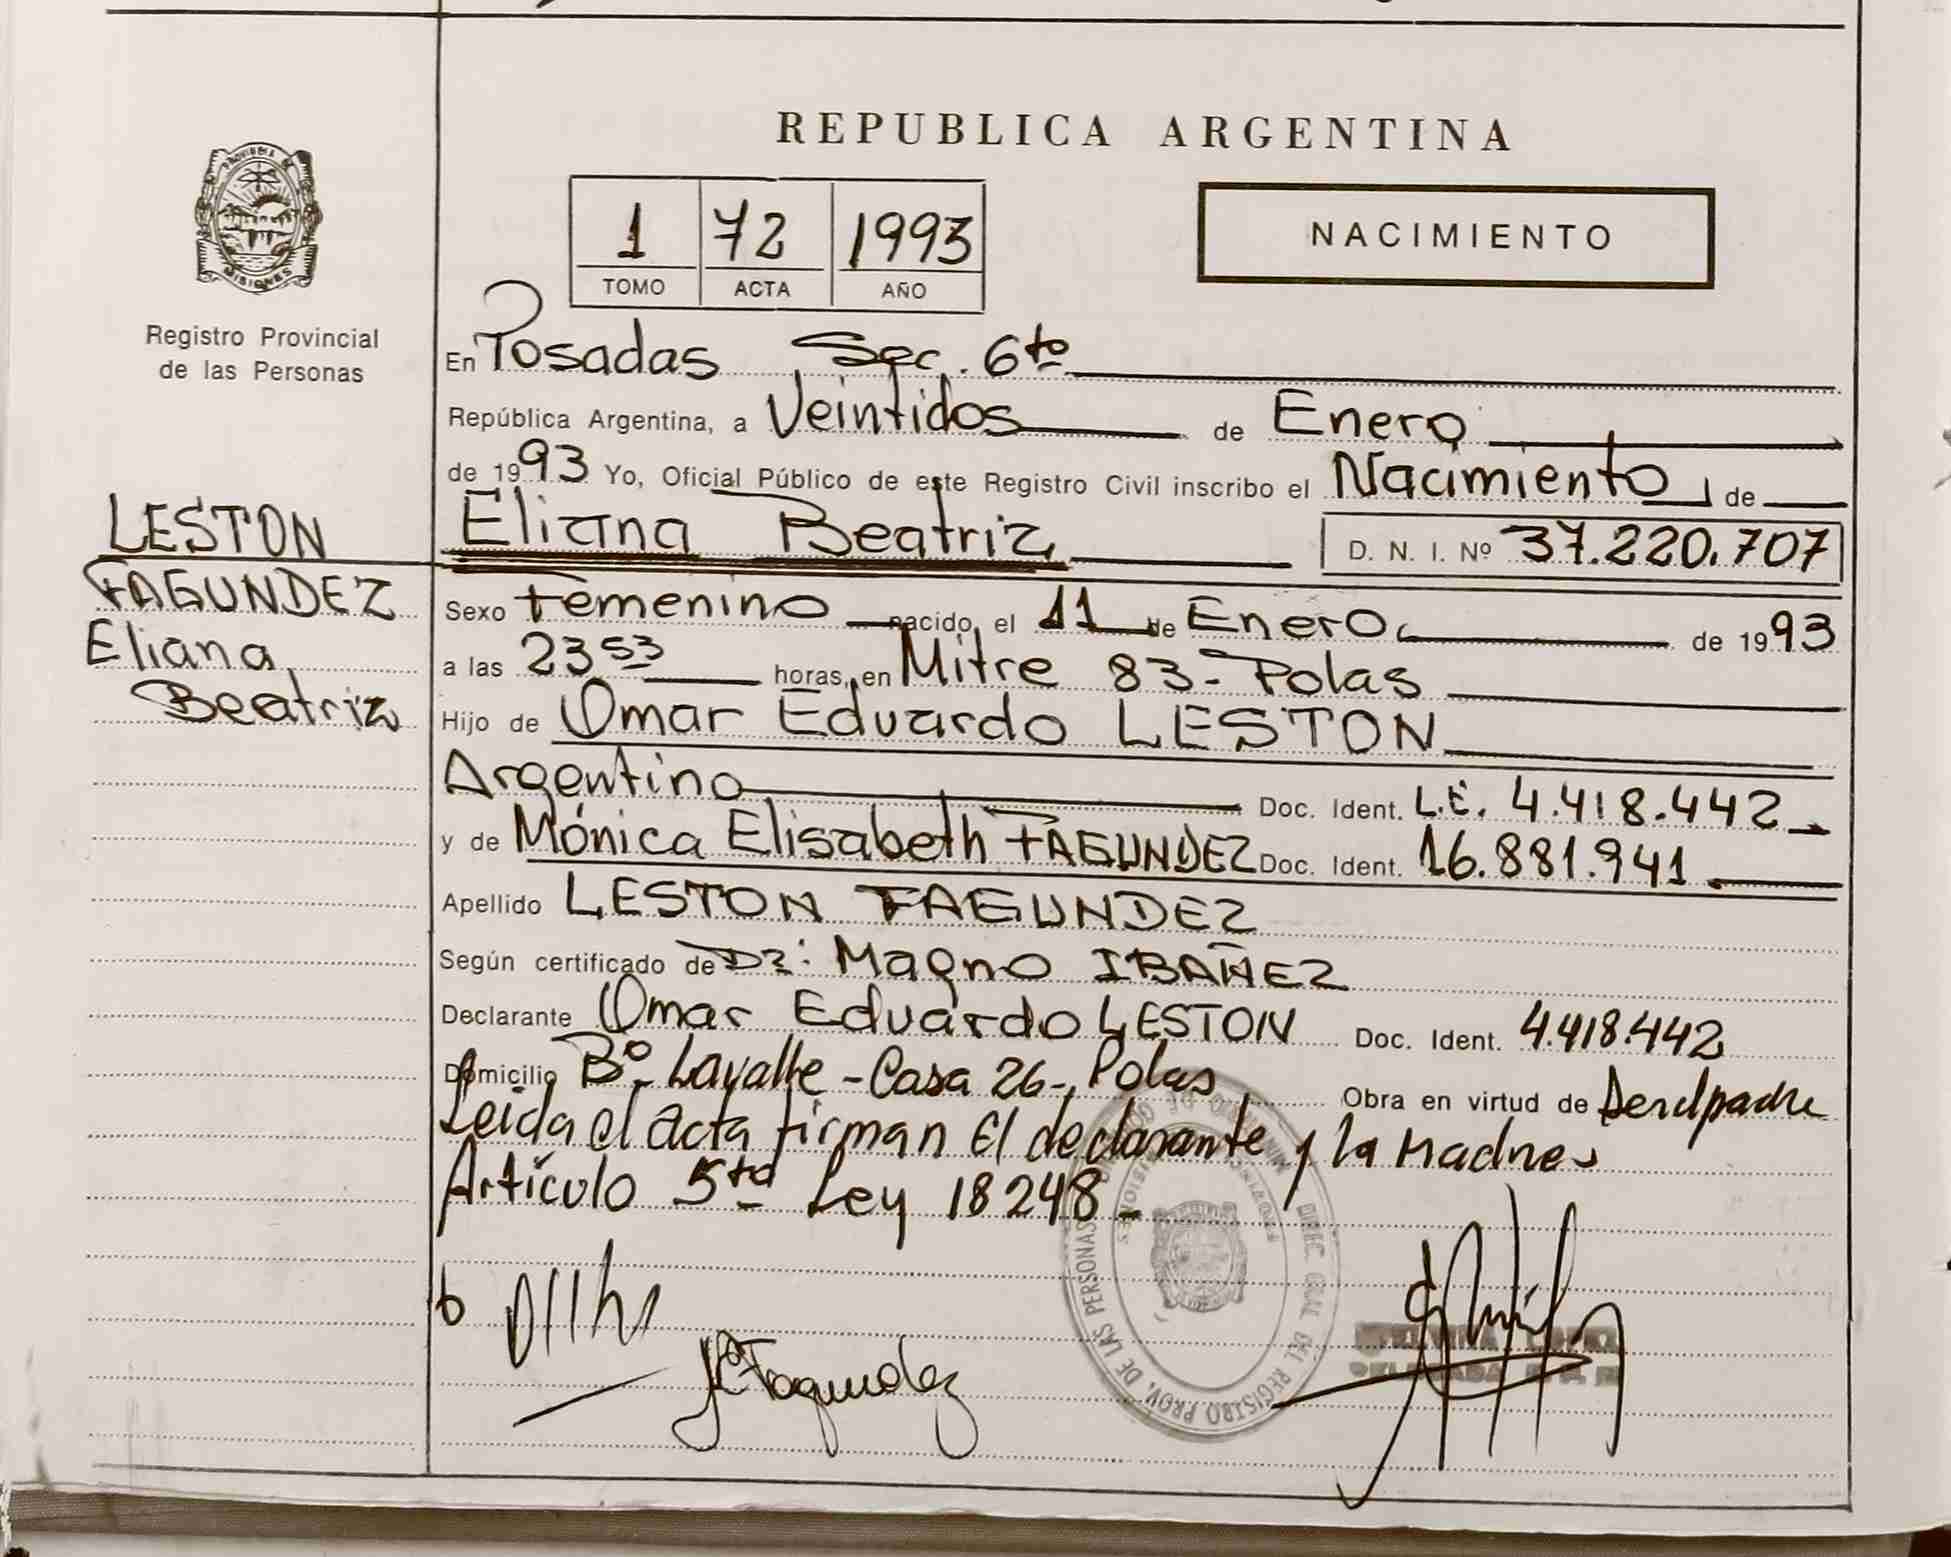 REPUBLICA ARGENTINA
PROVINCIA DE
MISIONES
Registro Provincial
de las Personas
1 72 1993
TOMO ACTA AÑO
NACIMIENTO
En Posadas Sec. 6to
República Argentina, a Veintidos de Enero
de 1993 Yo, Oficial Público de este Registro Civil inscribo el Nacimiento de
Eliana Beatriz D. N. I. Nº 37.220.707
LESTON
FAGUNDEZ
Eliana
Beatriz
Sexo Femenino nacido el 11 de Enero de 1993
a las 23 53 horas, en Mitre 83- Pdas
Hijo de Omar Eduardo LESTON
Argentino Doc. Ident. L.E. 4.418.442
y de Mónica Elisabeth FAGUNDEZ Doc. Ident. 16.881.941
Apellido LESTON FAGUNDEZ
Según certificado de Dr: Magno IBAÑEZ
Declarante Omar Eduardo LESTON Doc. Ident. 4.418.442
Domicilio Bº- Lavalle - Casa 26-, Pdas Obra en virtud de Ser el padre
Leida el acta firman El declarante y la Madre
Artículo 5to Ley 18248-
Fagundez
DIREC. GRAL. DEL REGISTRO PROV. DE LAS PERSONAS